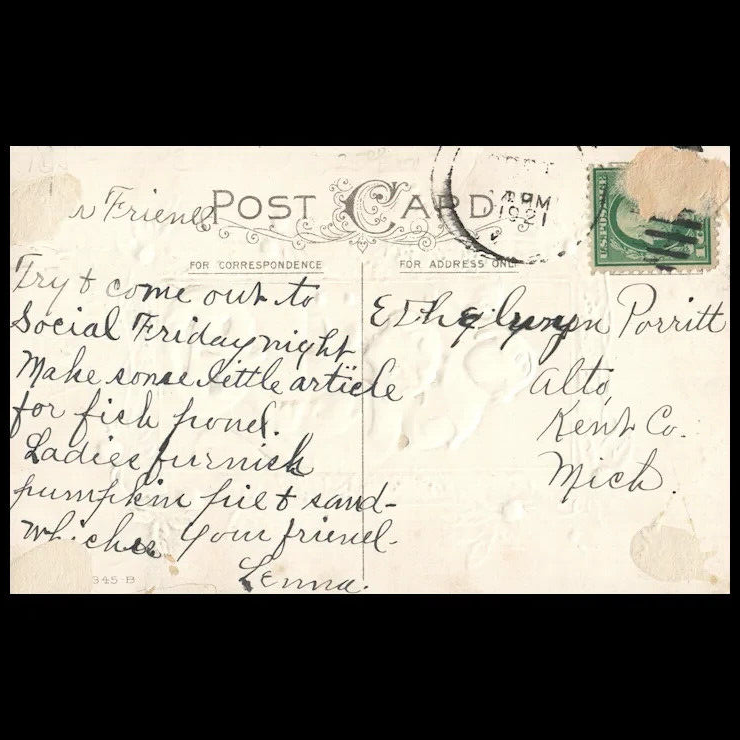 r Friend
POST CARD
4 PM
1921
U.S. POSTAGE
FOR CORRESPONDENCE
FOR ADDRESS ONLY
Try & come out to
Social Friday night
Make some little article
for fish pond.
Ladies furnish
pumpkin pie & sand-
whiches Your friend
Lenna.
Ethelwyn Porritt
Alto,
Kent Co.
Mich.
345-B